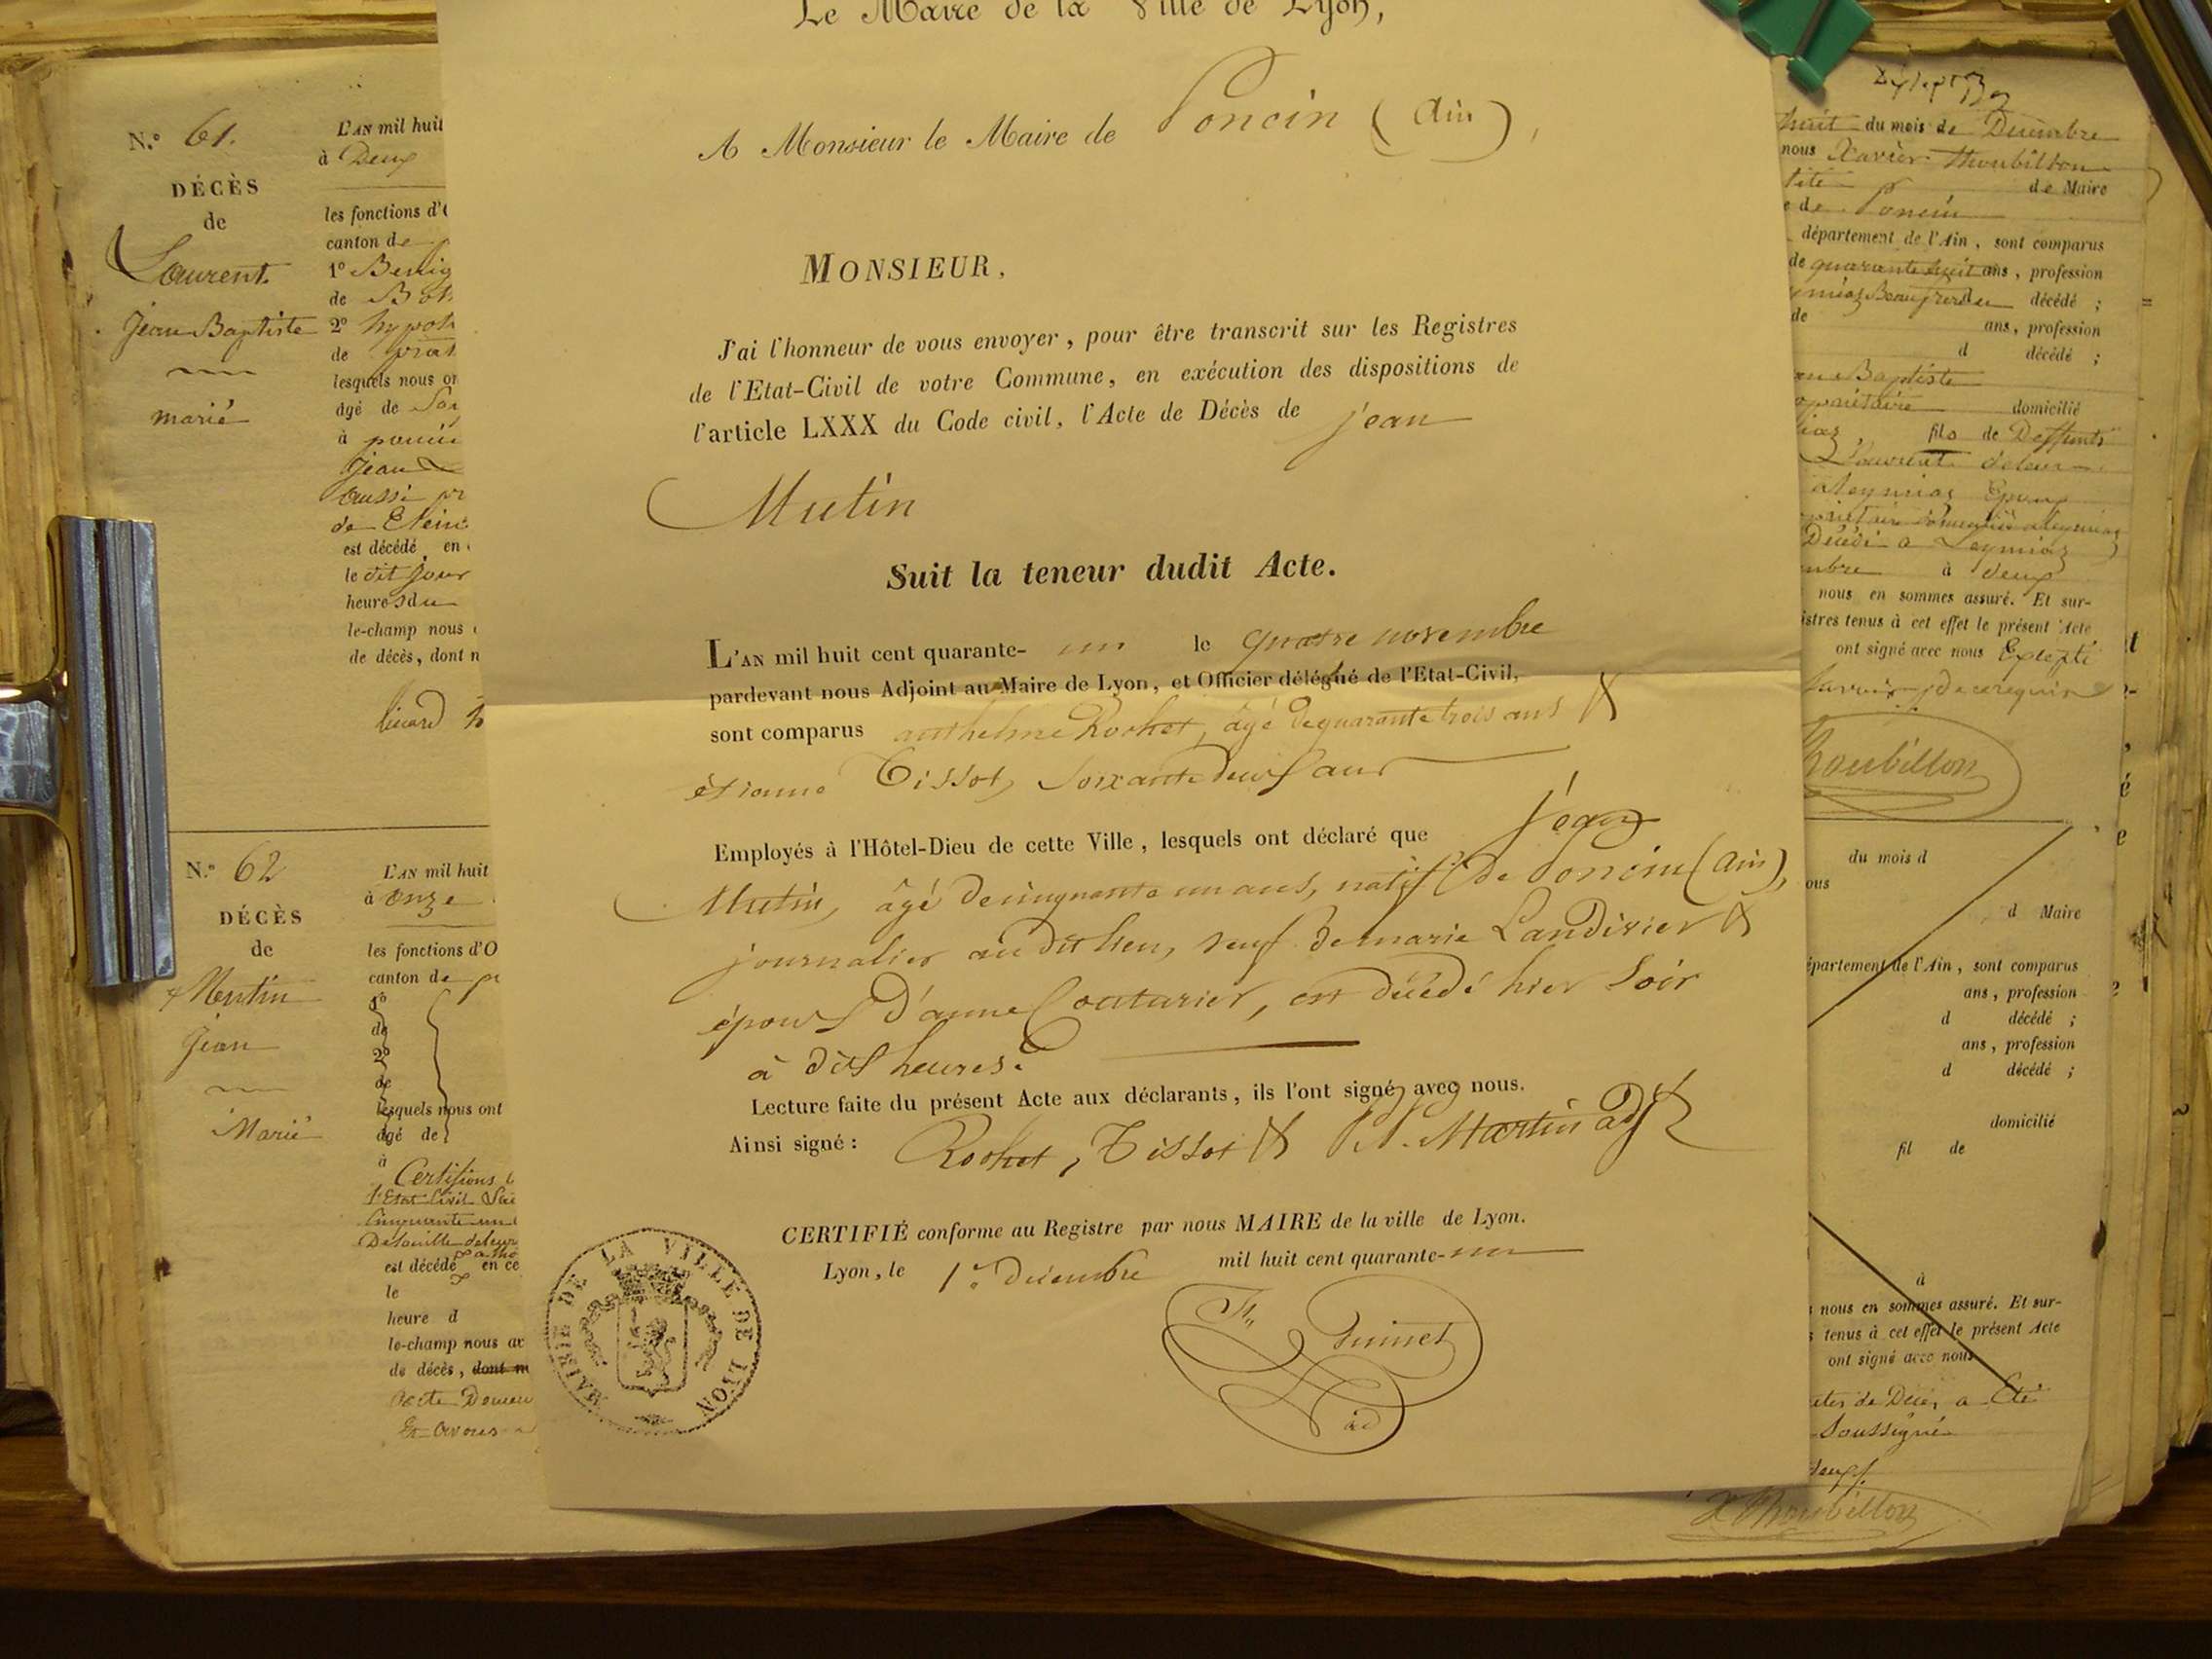 Le Maire de la Ville de Lyon,
A Monsieur le Maire de Poncin (Ain),
MONSIEUR,
J'ai l'honneur de vous envoyer, pour être transcrit sur les Registres
de l'Etat-Civil de votre Commune, en exécution des dispositions de
l'article LXXX du Code civil, l'Acte de Décès de jean
Mutin
Suit la teneur dudit Acte.
L'AN mil huit cent quarante- un le quatre novembre
pardevant nous Adjoint au Maire de Lyon, et Officier délégué de l'Etat-Civil,
sont comparus anthelme Rochet, âgé de quarante trois ans &
étienne Tissot, soixante deux ans
Employés à l'Hôtel-Dieu de cette Ville, lesquels ont déclaré que jean
Mutin, âgé de cinquante un ans, natif de Poncin (Ain),
journalier au dit lieu, veuf de marie Landivier &
époux d'anne Couturier, est décédé hier soir
à dix heures.
Lecture faite du présent Acte aux déclarants, ils l'ont signé avec nous.
Ainsi signé : Rochet, Tissot & Martin adjt
CERTIFIÉ conforme au Registre par nous MAIRE de la ville de Lyon.
Lyon, le 1er décembre mil huit cent quarante-un
MAIRIE DE LA VILLE DE LYON
ad
N.° 61.
DÉCÈS
de
Laurent
Jean Baptiste
marié
L'AN mil huit
à Deux
les fonctions d'
canton de
1° Benig
de
2° hypol
de
lesquels nous on
âgé de
à poncin
Jean
aussi
de
est décédé en
le dit jour
heures du
le-champ nous
de décès, dont n
N.° 62
DÉCÈS
de
Mutin
Jean
Marié
L'AN mil huit
à onze
les fonctions d'O
canton de
1°
de
2°
de
lesquels nous ont
âgé de
à
Certifions
l'Etat Civil
Cinquante un
est décédé en ce
le
heure d
le-champ nous av
de décès, dont
acte
Et avons
huit du mois de Décembre
nous Xavier Thoubillon
de Maire
de Poncin
département de l'Ain, sont comparus
de quarante huit ans, profession
Beaufrere du décédé ;
de ans, profession
d décédé ;
Baptiste
domicilié
fils de Deffunts
Laurent
Epoux
Décédé a Leymiaz
mbre à deux
nous en sommes assuré. Et sur-
istres tenus à cet effet le présent Acte
ont signé avec nous Excepté
Thoubillon
du mois d
ous
d Maire
épartement de l'Ain, sont comparus
ans, profession
d décédé ;
ans, profession
d décédé ;
domicilié
fil de
à
nous en sommes assuré. Et sur-
tenus à cet effet le présent Acte
ont signé avec nous
de Décès a Eté
Soussigné
X Thoubillon